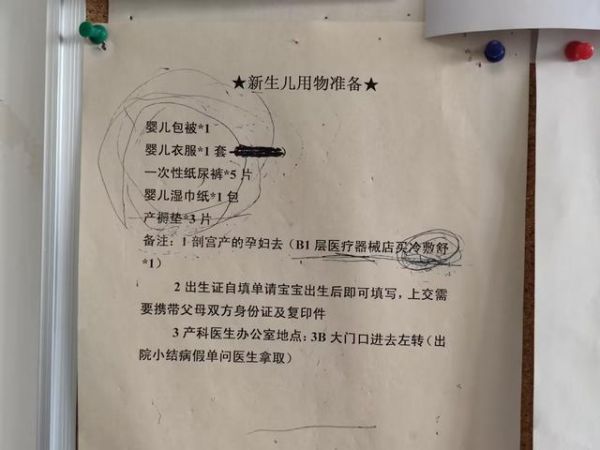 ★新生儿用物准备★
婴儿包被*1
婴儿衣服*1套
一次性纸尿裤*5片
婴儿湿巾纸*1包
产褥垫*3片
备注：1剖宫产的孕妇去（B1层医疗器械店买冷敷舒
*1）
2出生证自填单请宝宝出生后即可填写，上交需
要携带父母双方身份证及复印件
3产科医生办公室地点：3B大门口进去左转（出
院小结病假单问医生拿取）